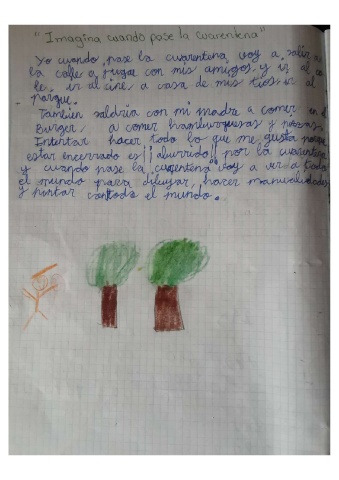 "Imagina cuando pase la cuarentena"
Yo cuando pase la cuarentena voy a salir a
la calle a jugar con mis amigos y ir al co
le, ir al cine, a casa de mis tios ir al
parque.
Tambien saldria con mi madre a comer en el
Burger, a comer hamburguesas y pizzas.
Intentar hacer todo lo que me gusta porque
estar encerrado es ¡¡aburrido!! por la cuarentena
y cuando pase la cuarentena voy a ver a todo
el mundo para dibujar, hacer manualidades
y pintar con todo el mundo.